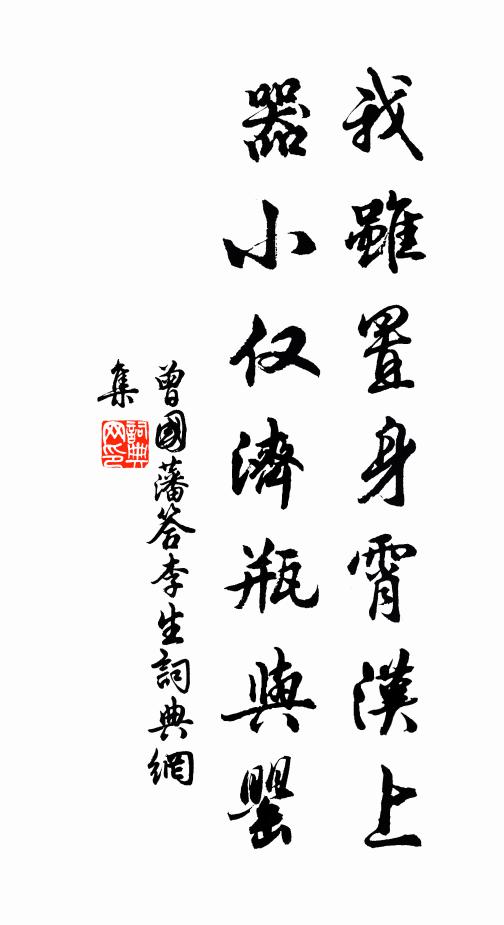 我雖置身霄漢上
器小仅濟瓶與罌
曾國藩答李生詞典網
集
詞典
网印